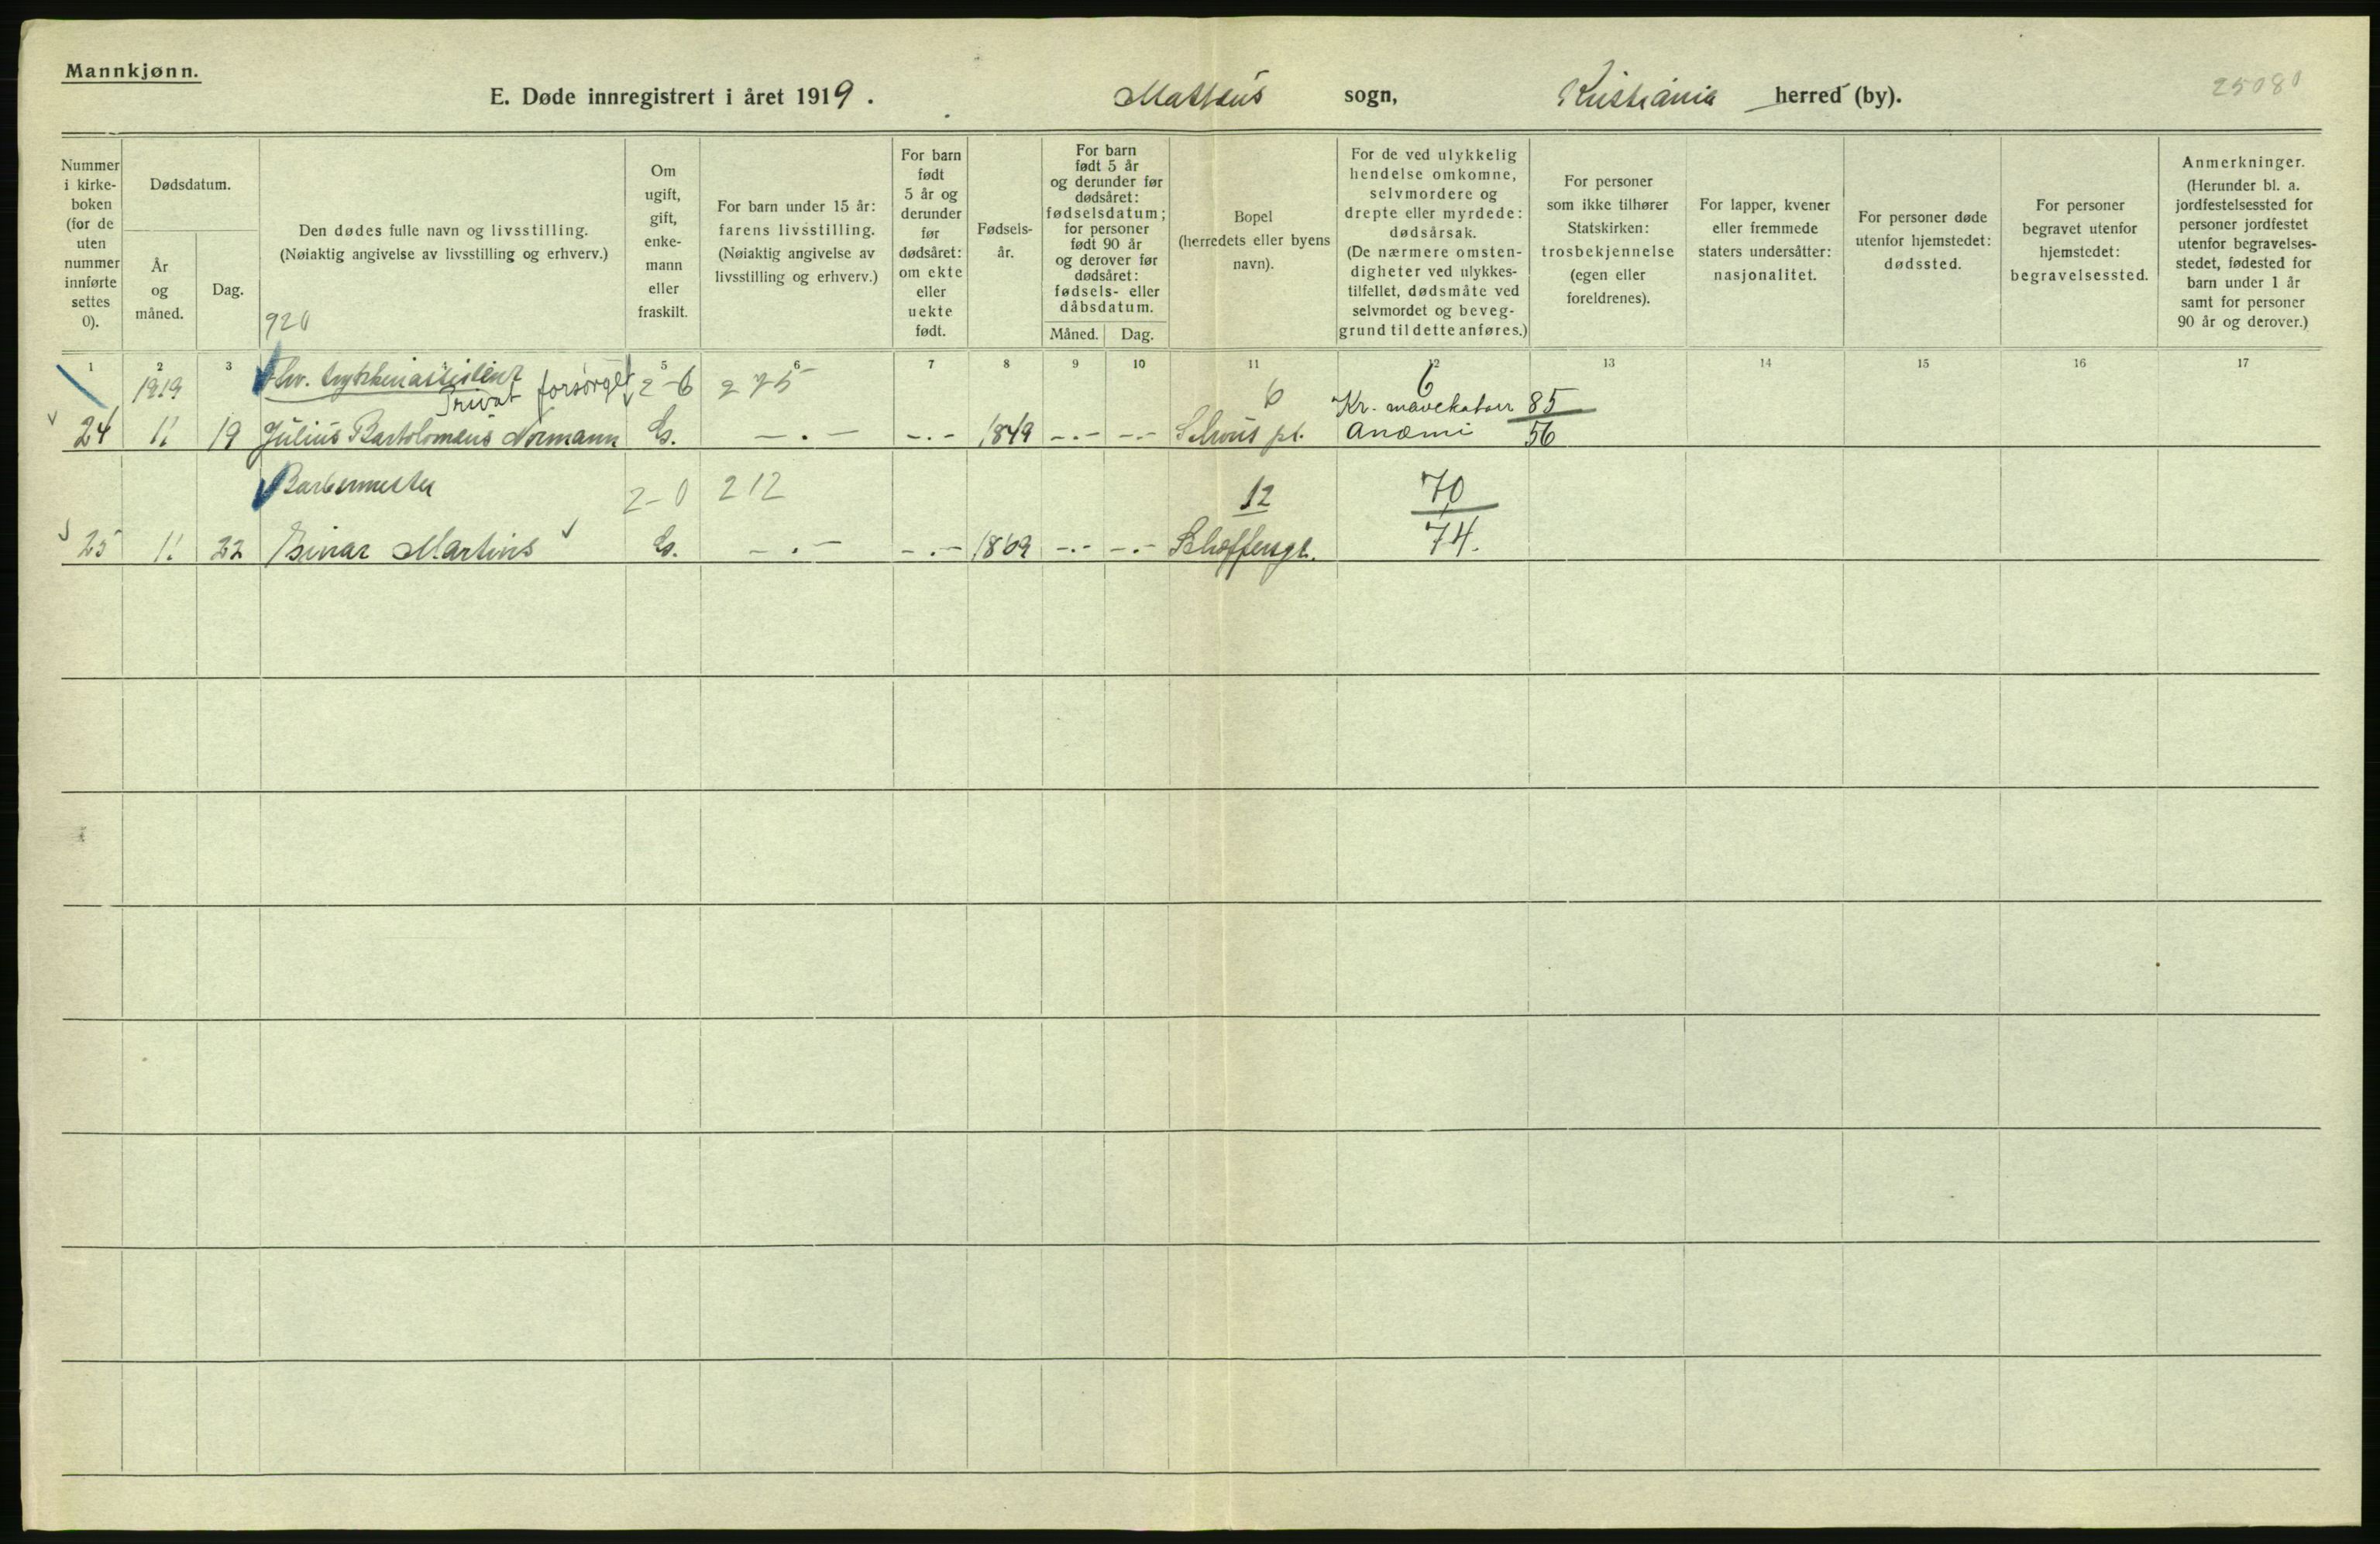 Mannkjønn.
E. Døde innregistrert i året 1919. Matteus sogn, Kristiania herred (by).
25080
Nummer i kirke-boken (for de uten nummer innførte settes 0).
Dødsdatum.
År og måned.
Dag.
Den dødes fulle navn og livsstilling.
(Nøiaktig angivelse av livsstilling og erhverv.)
920
Om ugift, gift, enke-mann eller fraskilt.
For barn under 15 år: farens livsstilling.
(Nøiaktig angivelse av livsstilling og erhverv.)
For barn født 5 år og derunder før dødsåret: om ekte eller uekte født.
Fødsels-år.
For barn født 5 år og derunder før dødsåret: fødselsdatum; for personer født 90 år og derover før dødsåret: fødsels- eller dåbsdatum.
Måned.
Dag.
Bopel
(herredets eller byens navn).
For de ved ulykkelig hendelse omkomne, selvmordere og drepte eller myrdede: dødsårsak.
(De nærmere omsten-digheter ved ulykkes-tilfellet, dødsmåte ved selvmordet og beveg-grund til dette anføres.)
For personer som ikke tilhører Statskirken: trosbekjennelse
(egen eller foreldrenes).
For lapper, kvener eller fremmede staters undersåtter: nasjonalitet.
For personer døde utenfor hjemstedet: dødssted.
For personer begravet utenfor hjemstedet: begravelsessted.
Anmerkninger.
(Herunder bl. a. jordfestelsessted for personer jordfestet utenfor begravelses-stedet, fødested for barn under 1 år samt for personer 90 år og derover.)
1 2 3 5 6 7 8 9 10 11 12 13 14 15 16 17
1919 2-6 275 6 6
Privat forsørget Kr. mavekatarr 85
24 11 19 Julius Bartolomeus Normann G. -.- -.- 1849 -.- -.- Schous pl. Anæmi 56
Barbermester 2-0 212 12 70
25 11 22 Einar Martins G. -.- -.- 1869 -.- -.- 74.